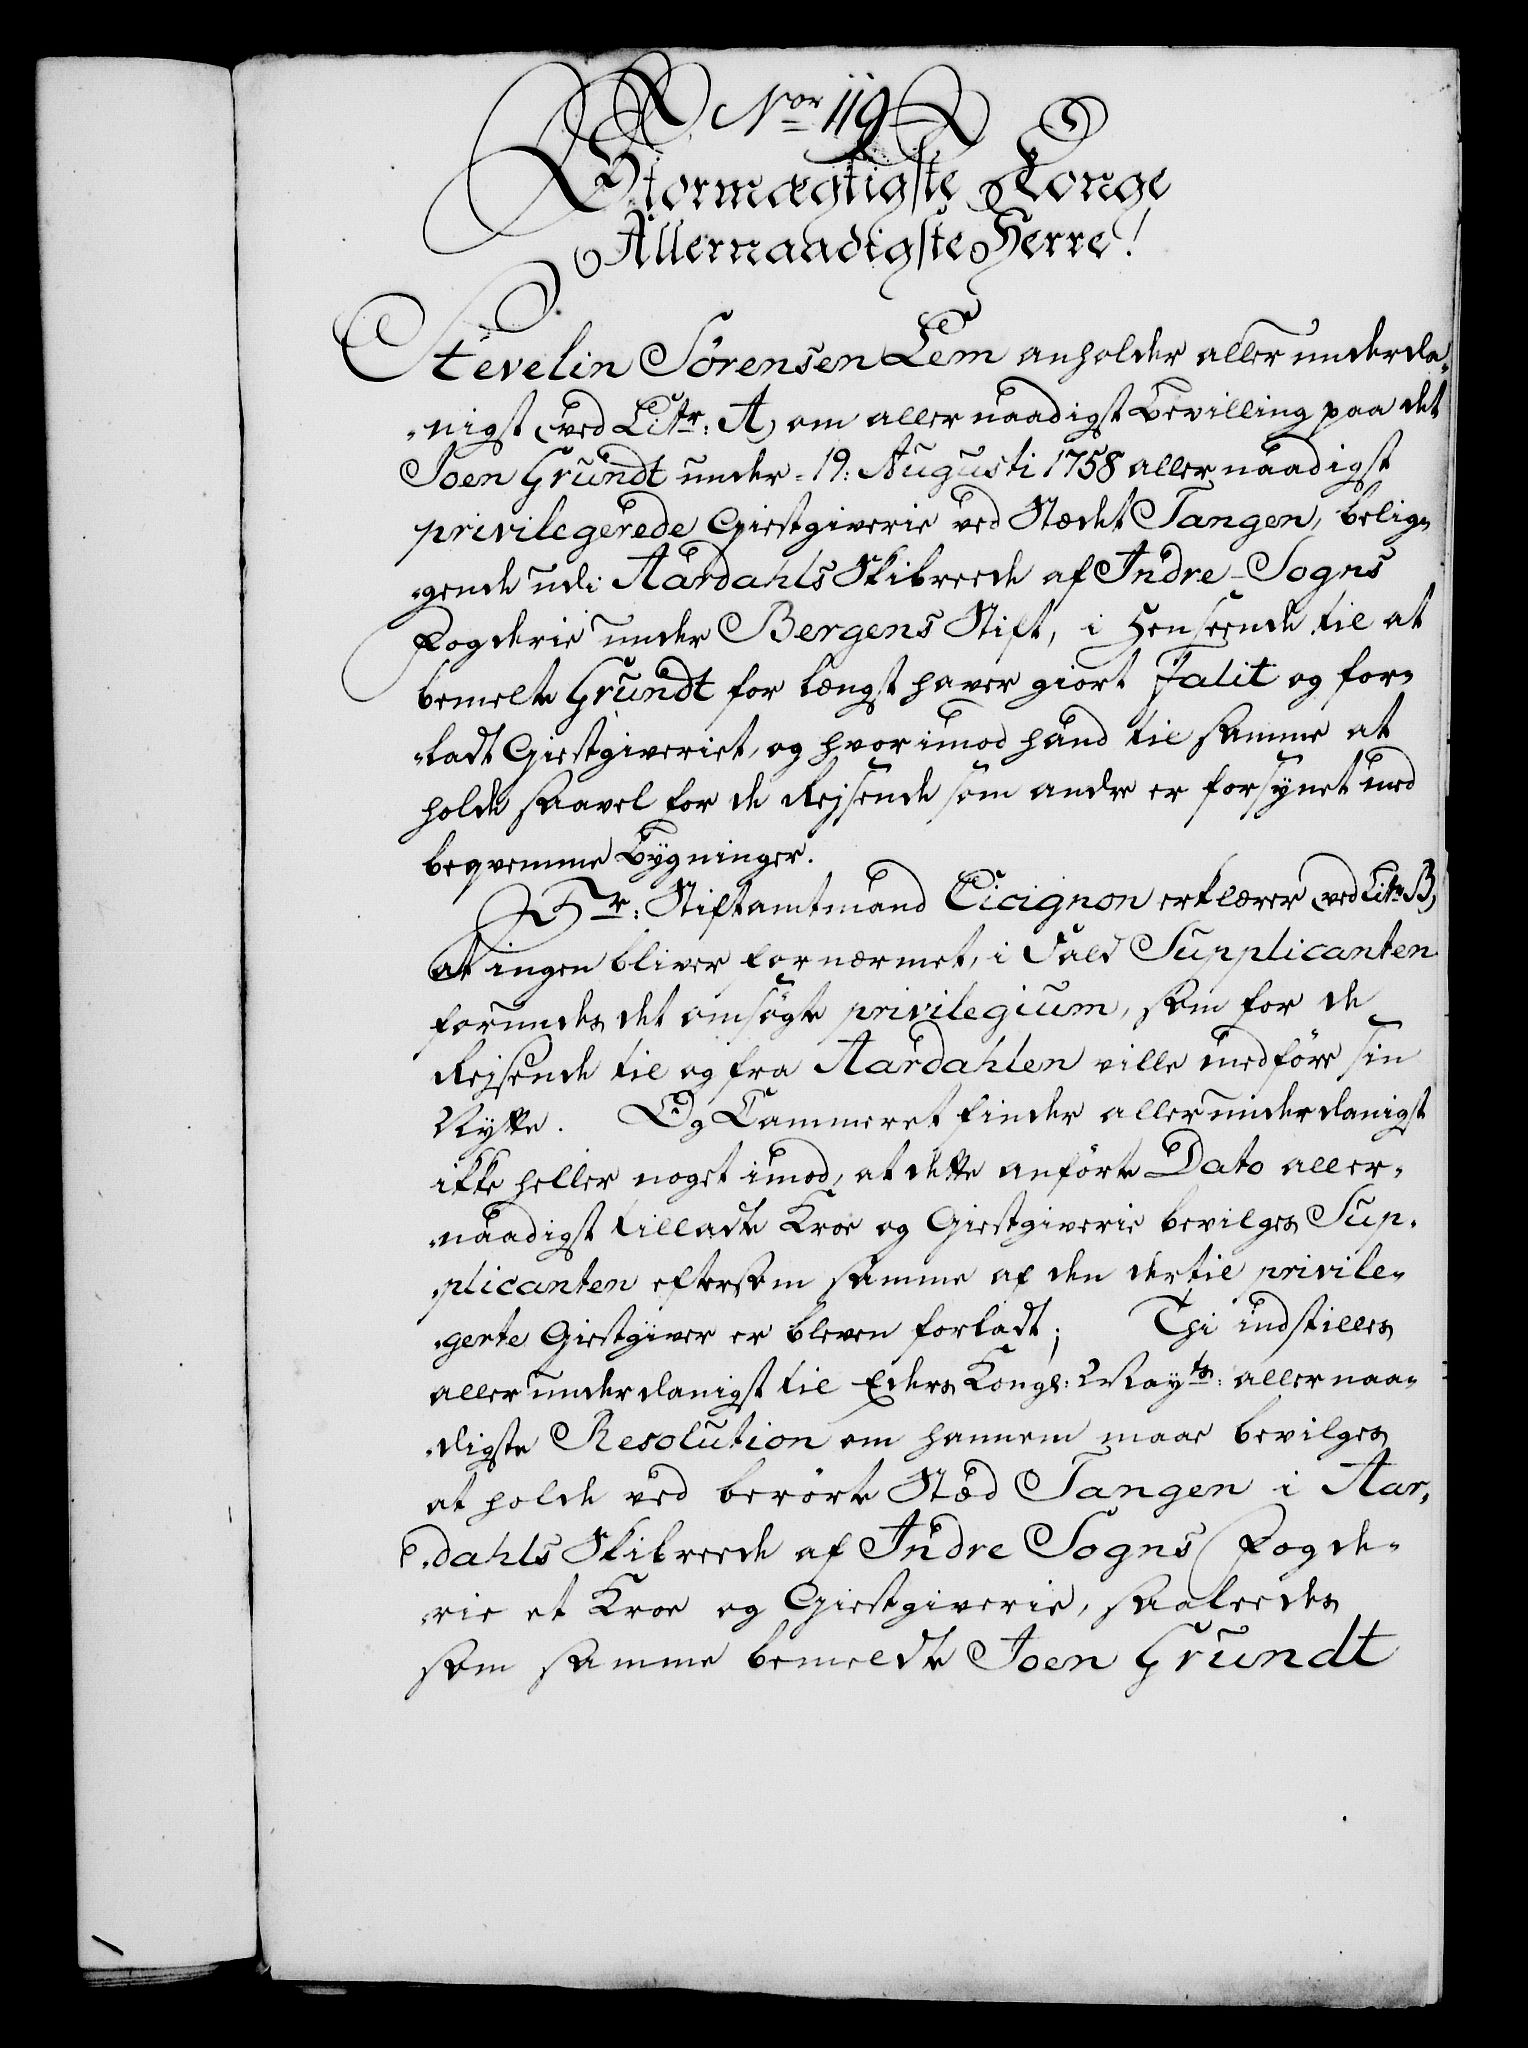 Nor 119
Stormægtigste Konge
Allernaadigste Herre!
Stevelin Sörensen Lem anholder allerunderda„
„nigst (ved Litr: A) om allernaadigst bevilling paa det
Joen Grundt under 19: Augusti 1758 allernaadigst
privilegerede Giestgiverie ved Stædet Tangen, belig„
„gende udi Aardahls Skibreede af Indre-Sogns
Fogderie under Bergens Stift, i Henseende til at
bemelte Grundt for længst haver giort Falit og for„
„ladt Giestgiveriet, og hvorimod hand til samme at
holde saavel for de Rejsende som andre er forsynet med
beqvemme bygninger.
Hr: Stiftamtmand Cicignon erklærer (ved Litr B)
at ingen bliver fornærmet, i Fald Supplicanten
forundes det omsögte privilegium, som for de
Rejsende til og fra Aardahlen ville medföre sin
Nytte. Og Cammeret finder allerunderdanigst
ikke heller noget imod, at dette anförte Dato aller„
„naadigst tilladte Kroe og Giestgiverie bevilges Sup„
„plicanten eftersom samme af den dertil privile„
„gerte Giestgiver er bleven forladt; Thi indstilles
allerunderdanigst til Eders Kongl: Mayts: allernaa„
„digste Resolution om hannem maae bevilges
at holde ved berörte Stæd Tangen i Aar„
„dahls Skibreede af Indre Sogns Fogde„
„rie et Kroe og Giestgiverie, saaledes
som samme bemeldte Joen Grundt